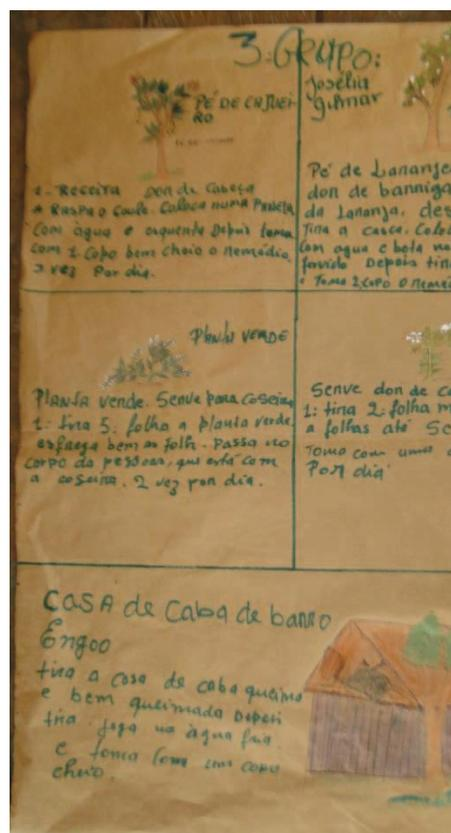 3: GRUPO:
Josélia
gilmar
PÉ DE CAJUEI
RO
1- RECEITA DON de Cabeça
A RASPA o Caule. Coloca numa PANELA
Com água e esquenta Depois toma
com 1 Copo bem cheio o remédio
3 vez Por dia.
Pé de Laranje
don de barriga
da Laranja, des
Tira a casca. Colo
Com agua e bota no
fervido Depois tir
Toma 2 copo o remei
PLANTA VERDE
PLANTA verde. Serve para Coseira
1: tira 5. folha a planta verde
esfrega bem as folh. Passa no
corpo da pessoas, que está com
a coseira. 2 vez por dia.
Serve don de ca
1: tira 2 folha m
a folhas até se
Toma com uma
Por dia
CASA de Caba de barro
Engoo
tira a casa de caba queima
e bem queimada Depois
tira. joga na água fria.
e toma Com um copo
cheio.